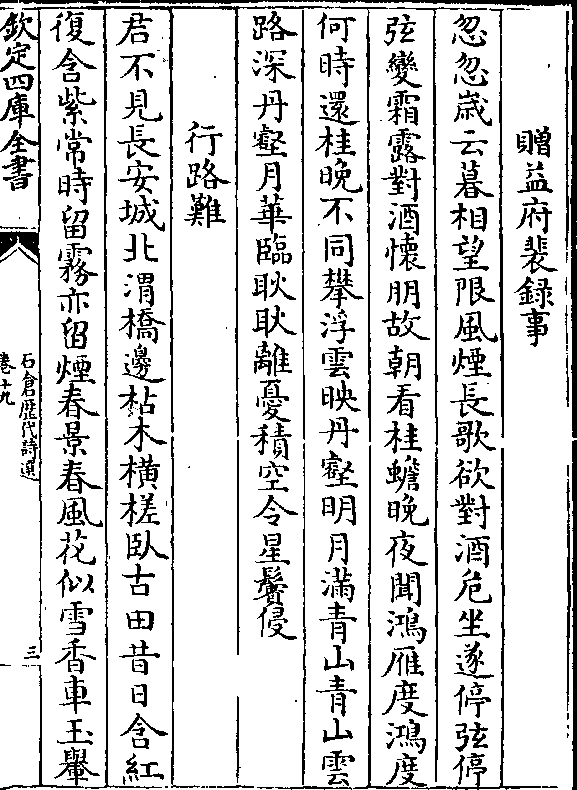 贈益府裴録事
忽忽歳云暮相望限風煙長歌欲對酒危坐遂停弦停
弦變霜露對酒懷朋故朝看桂蟾晚夜聞鴻雁度鴻度
何時還桂晚不同攀浮雲映丹壑明月滿青山青山雲
路深丹壑月華臨耿耿離憂積空令星鬢侵
行路難
君不見長安城北渭橋邊枯木横槎臥古田昔日含紅
復含紫常時留霧亦留煙春景春風花似雪香車玉轝
欽定四庫全書
石倉歴代詩選
卷十九
三